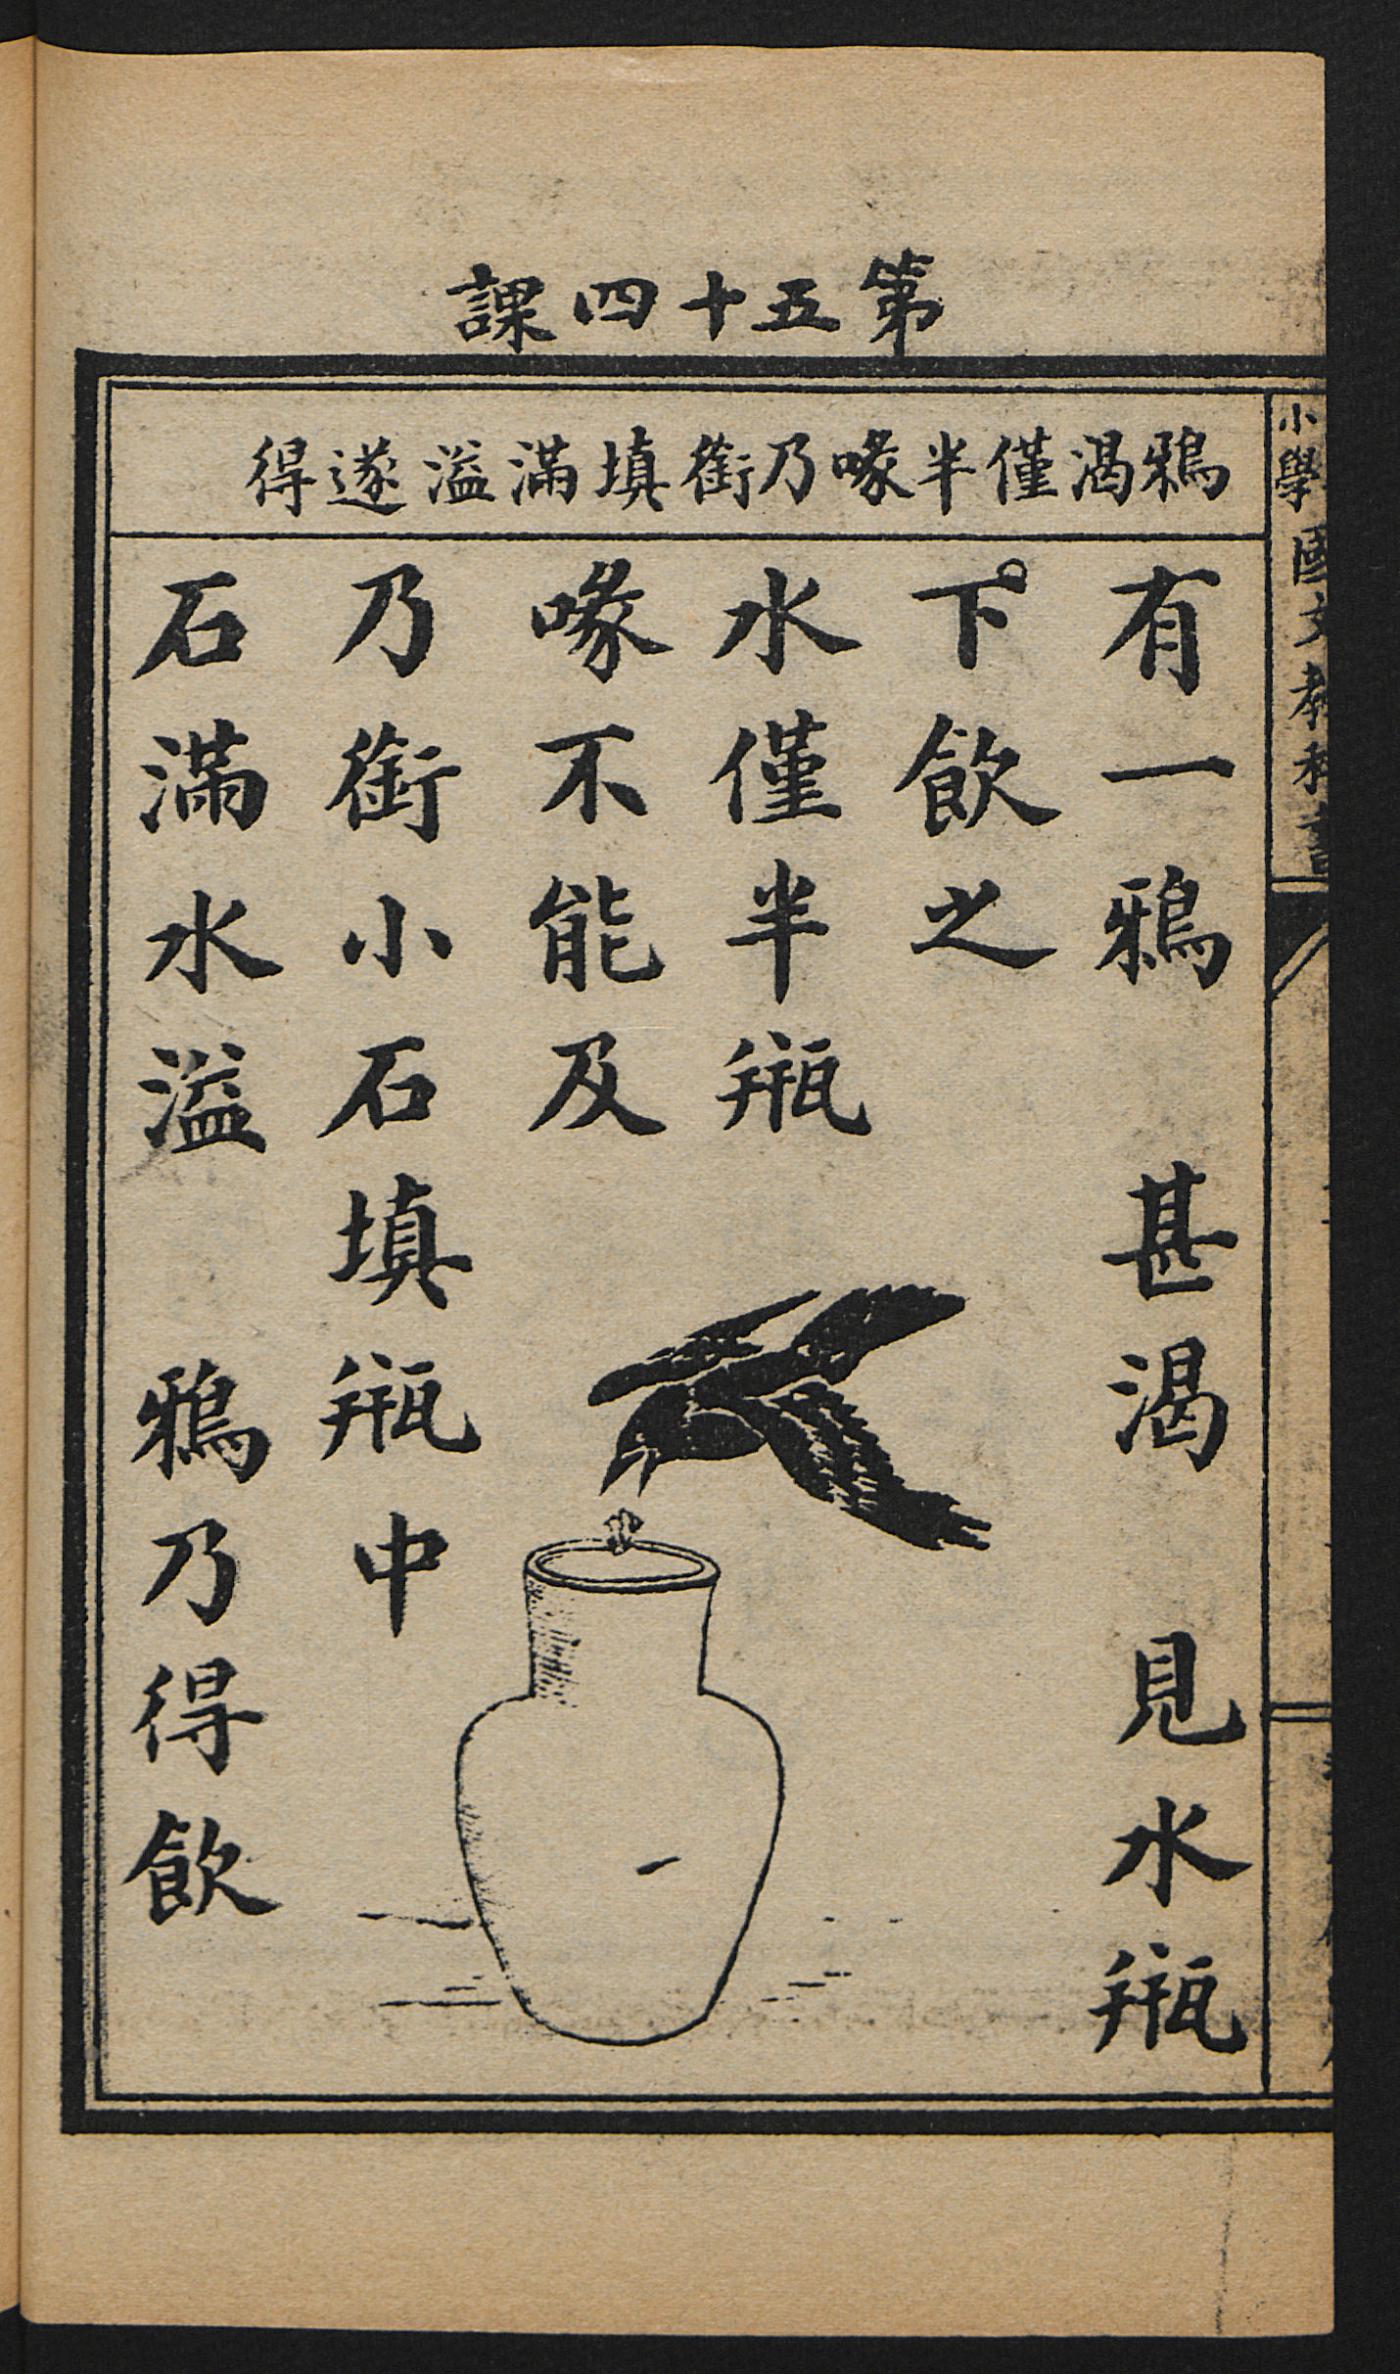 第五十四課
鴉渴僅半喙乃銜填滿溢遂得
有一鴉　甚渴　見水瓶
下飲之
水僅半瓶
喙不能及
乃銜小石填瓶中
石滿水溢　鴉乃得飲
小學國文教科書